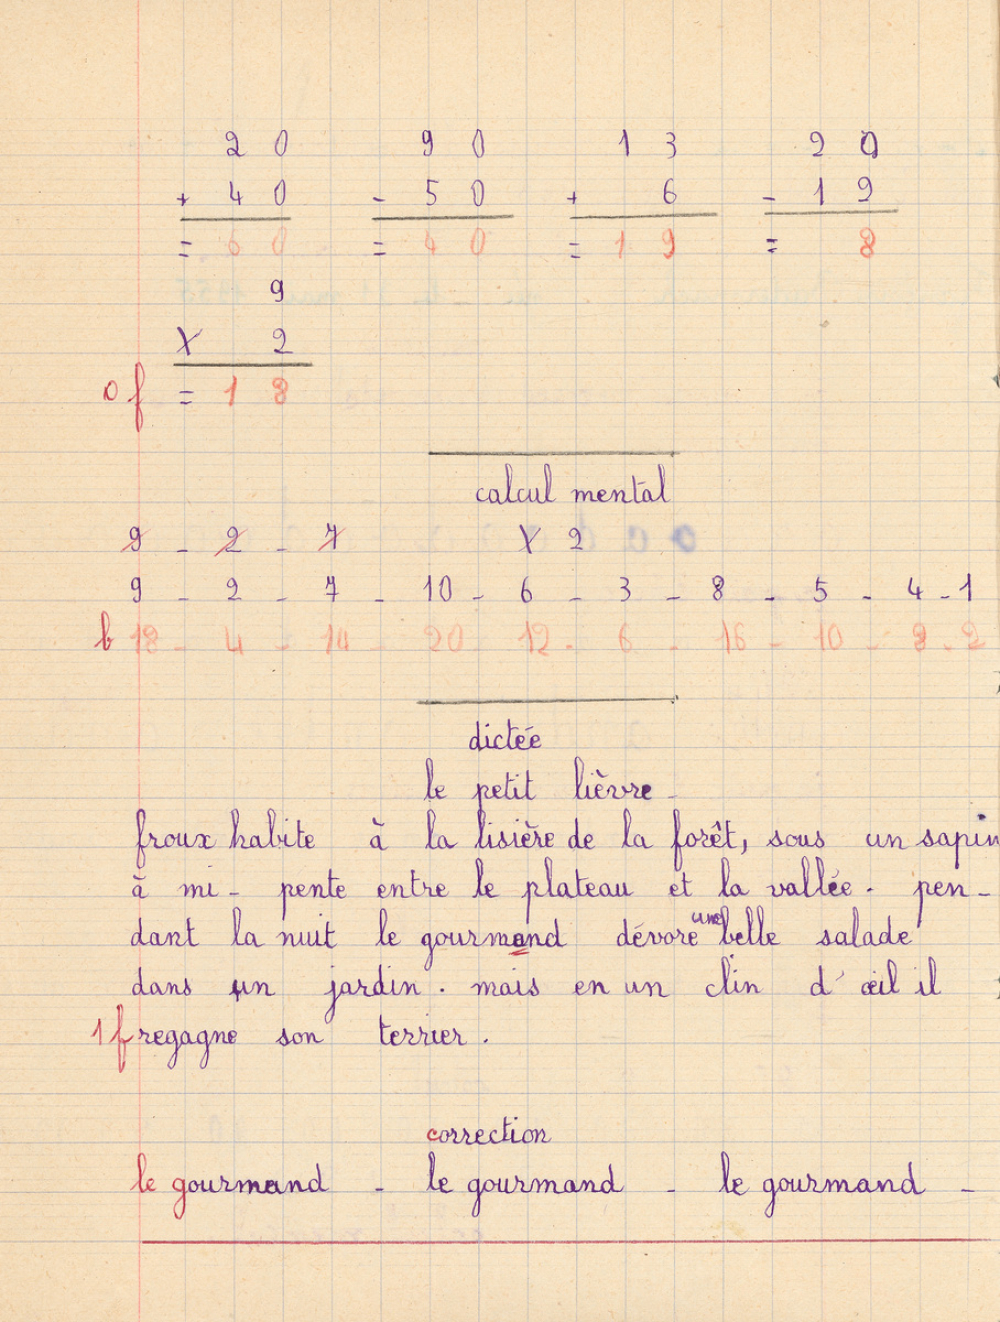 20 90 13 20
+ 40 - 50 + 6 - 12
= 60 = 40 = 19 = 8
9
X 2
0 f = 18
calcul mental
9 - 2 - 7 X 2
9 - 2 - 7 - 10 - 6 - 3 - 8 - 5 - 4 - 1
b 18 - 4 - 14 - 20 - 12 - 6 - 16 - 10 - 8 - 2
dictée
le petit lièvre -
froux habite à la lisière de la forêt, sous un sapin
à mi - pente entre le plateau et la vallée . pen -
dant la nuit le gourmand dévore une belle salade
dans un jardin . mais en un clin d'œil il
1 f regagne son terrier .
correction
le gourmand - le gourmand - le gourmand -